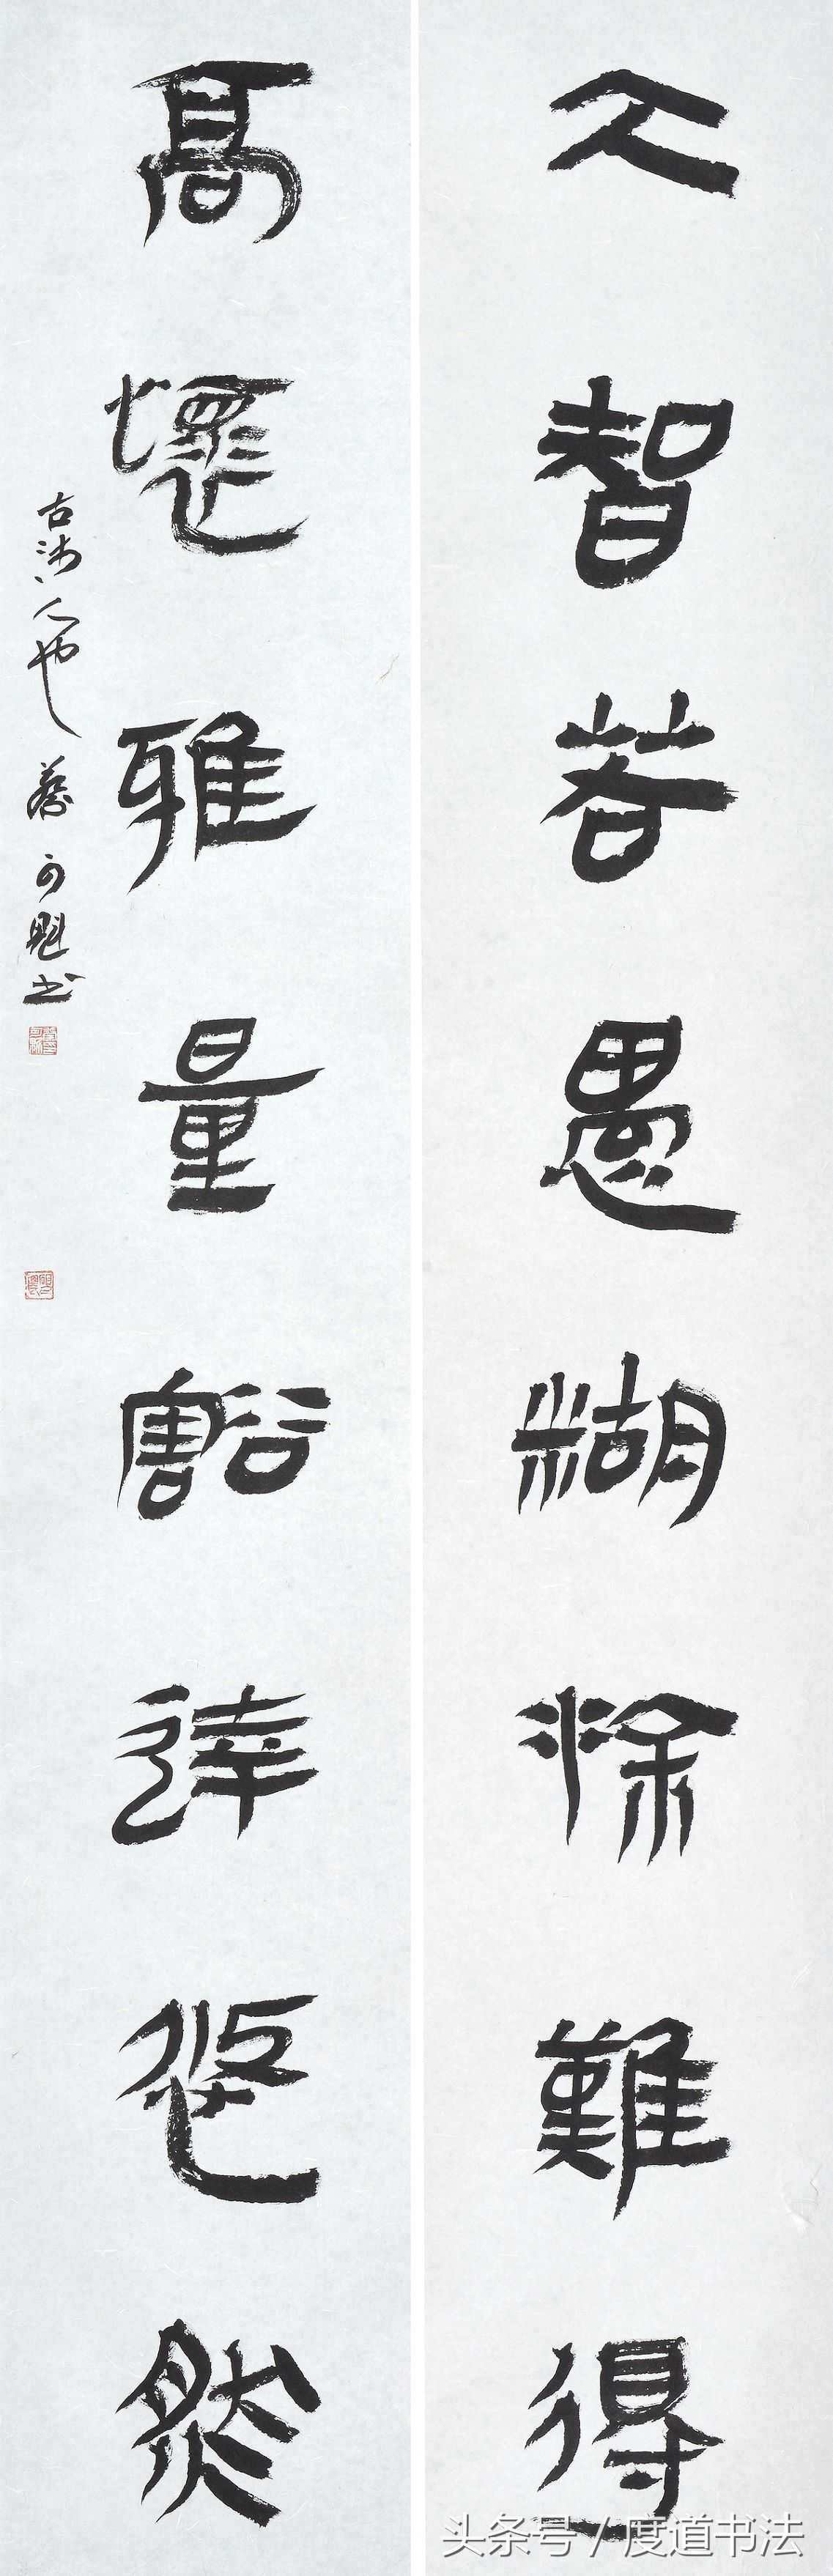 大智若愚糊涂難得
高懷雅量豁達悠然
古沛人也 蔡可书
头条号 / 度道书法